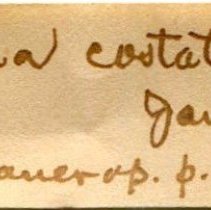 a costat
Jav
aner op. p.